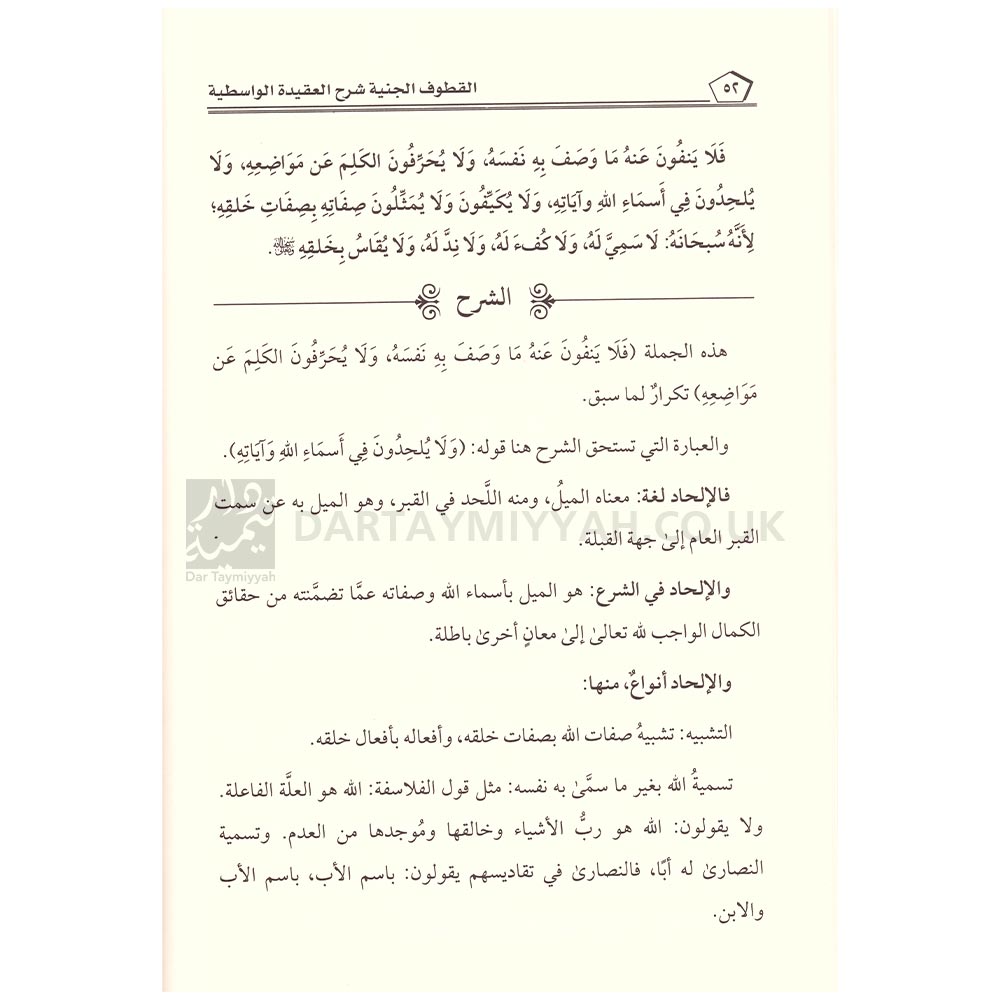 ٥٢ القطوف الجنية شرح العقيدة الواسطية
فَلَا يَنفُونَ عَنهُ مَا وَصَفَ بِهِ نَفسَهُ، وَلَا يُحَرِّفُونَ الكَلِمَ عَن مَوَاضِعِهِ، وَلَا
يُلحِدُونَ فِي أَسمَاءِ اللهِ وآيَاتِهِ، وَلَا يُكَيِّفُونَ وَلَا يُمَثِّلُونَ صِفَاتِهِ بِصِفَاتِ خَلقِهِ؛
لِأَنَّهُ سُبحَانَهُ: لَا سَمِيَّ لَهُ، وَلَا كُفءَ لَهُ، وَلَا نِدَّ لَهُ، وَلَا يُقَاسُ بِخَلقِهِ.
الشرح
هذه الجملة (فَلَا يَنفُونَ عَنهُ مَا وَصَفَ بِهِ نَفسَهُ، وَلَا يُحَرِّفُونَ الكَلِمَ عَن
مَوَاضِعِهِ) تكرارٌ لما سبق.
والعبارة التي تستحق الشرح هنا قوله: (وَلَا يُلحِدُونَ فِي أَسمَاءِ اللهِ وَآيَاتِهِ).
فالإلحاد لغة: معناه الميلُ، ومنه اللَّحد في القبر، وهو الميل به عن سمت
القبر العام إلىٰ جهة القبلة.
والإلحاد في الشرع: هو الميل بأسماء الله وصفاته عمَّا تضمَّنته من حقائق
الكمال الواجب لله تعالىٰ إلىٰ معانٍ أخرىٰ باطلة.
والإلحاد أنواعٌ، منها:
التشبيه: تشبيهُ صفات الله بصفات خلقه، وأفعاله بأفعال خلقه.
تسميةُ الله بغير ما سمَّىٰ به نفسه: مثل قول الفلاسفة: الله هو العلَّة الفاعلة.
ولا يقولون: الله هو ربُّ الأشياء وخالقها ومُوجدها من العدم. وتسمية
النصارىٰ له أبًا، فالنصارىٰ في تقاديسهم يقولون: باسم الأب، باسم الأب
والابن.
دار تيمية
Dar Taymiyyah
DARTAYMIYYAH.CO.UK